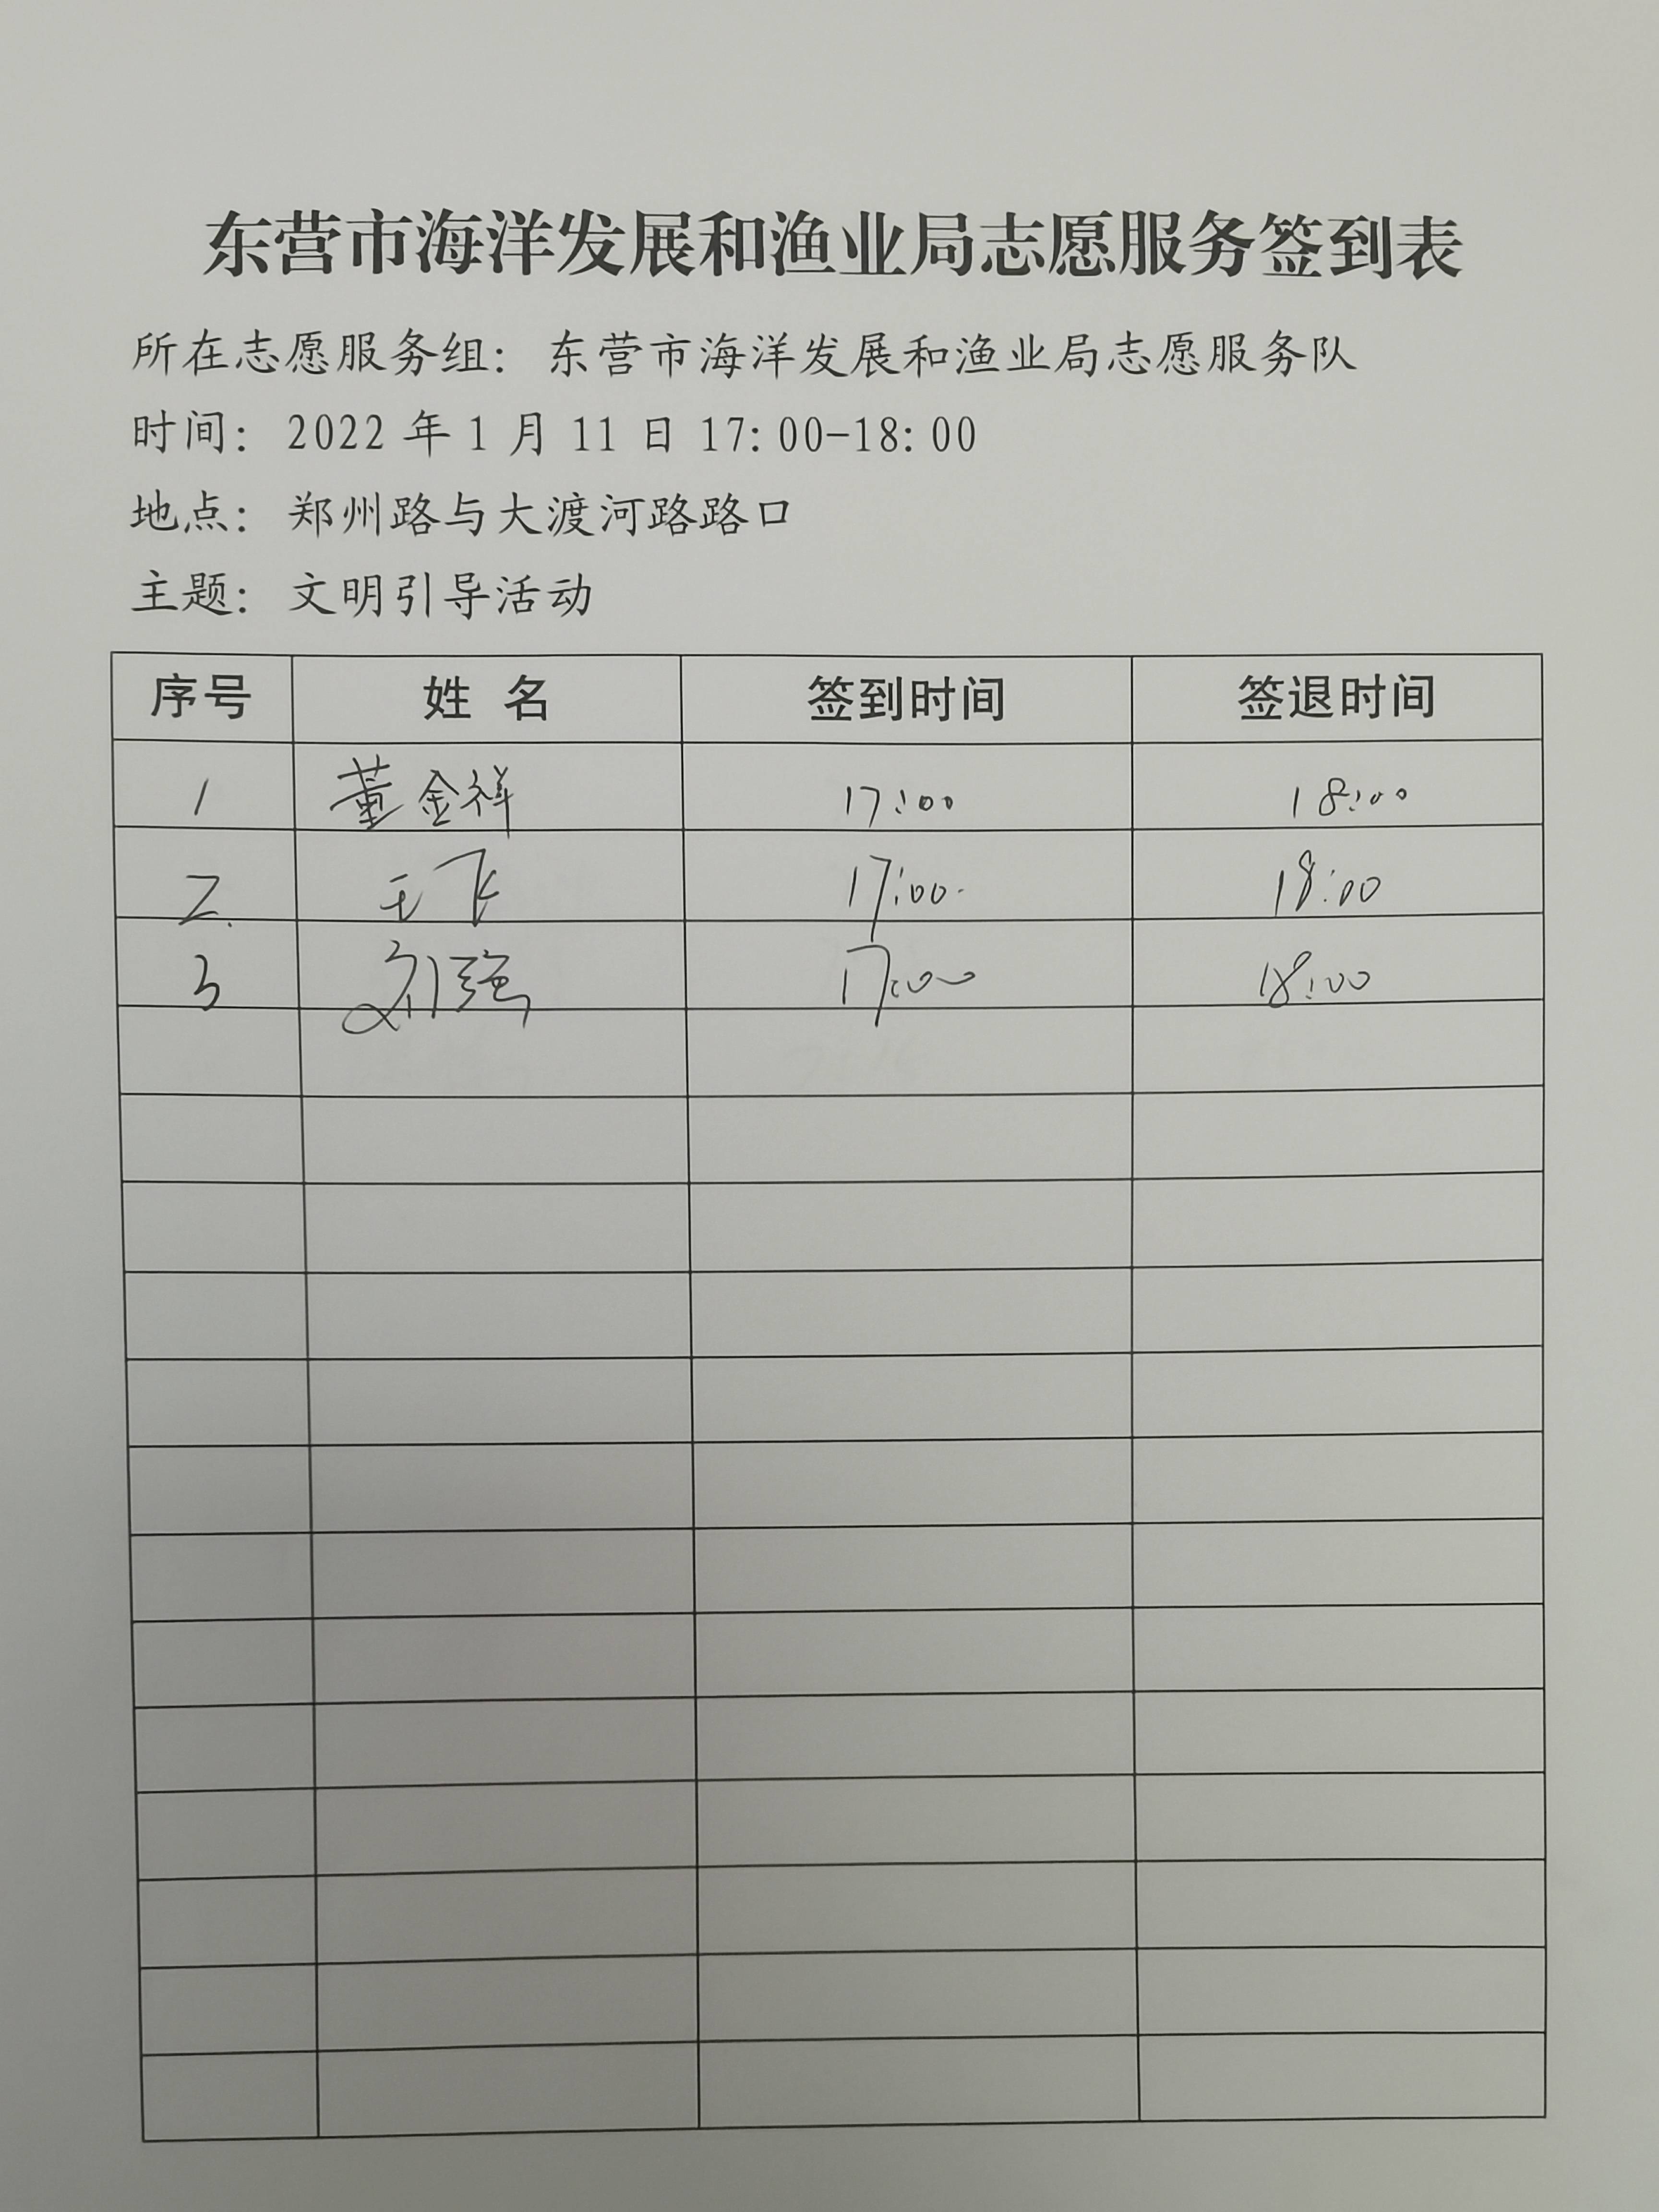 东营市海洋发展和渔业局志愿服务签到表
所在志愿服务组：东营市海洋发展和渔业局志愿服务队
时间：2022年1月11日17:00-18:00
地点：郑州路与大渡河路路口
主题：文明引导活动
序号 姓名 签到时间 签退时间
1 董金祥 17:00 18:00
2. 王飞 17:00. 18:00
3 刘强 17:00 18:00